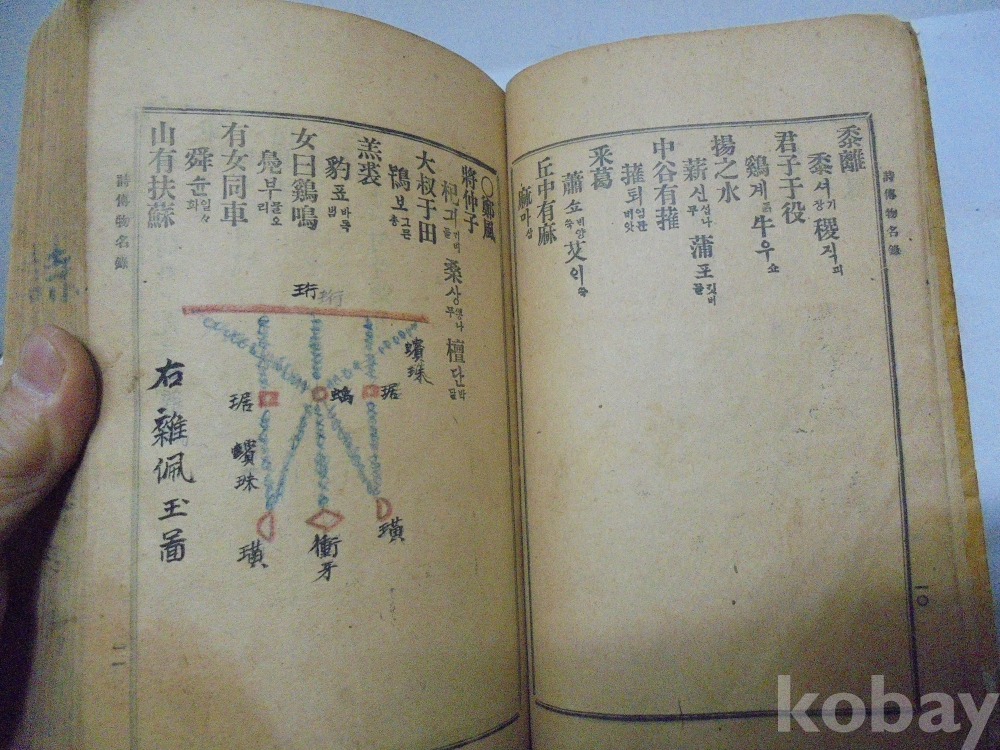 詩傳物名錄
黍離
黍 서 기장 稷 직 피
君子于役
鷄 계 牛 우 쇼
揚之水
薪 신 蒲 포
中谷有蓷
蓷 퇴
采葛
蕭 쇼 艾 애 쑥
丘中有麻
麻 마 삼
一〇
〇鄭風
將仲子
杞 긔 桑 상 檀 단
大叔于田
鴇 보
羔裘
豹 표
女曰鷄鳴
鳧 부
有女同車
舜 슌
山有扶蘇
詩傳物名錄
一一
珩 珩
蠙珠
琚
瑀
琚
蠙珠
璜
衝牙
璜
右雜佩玉圖
kobay